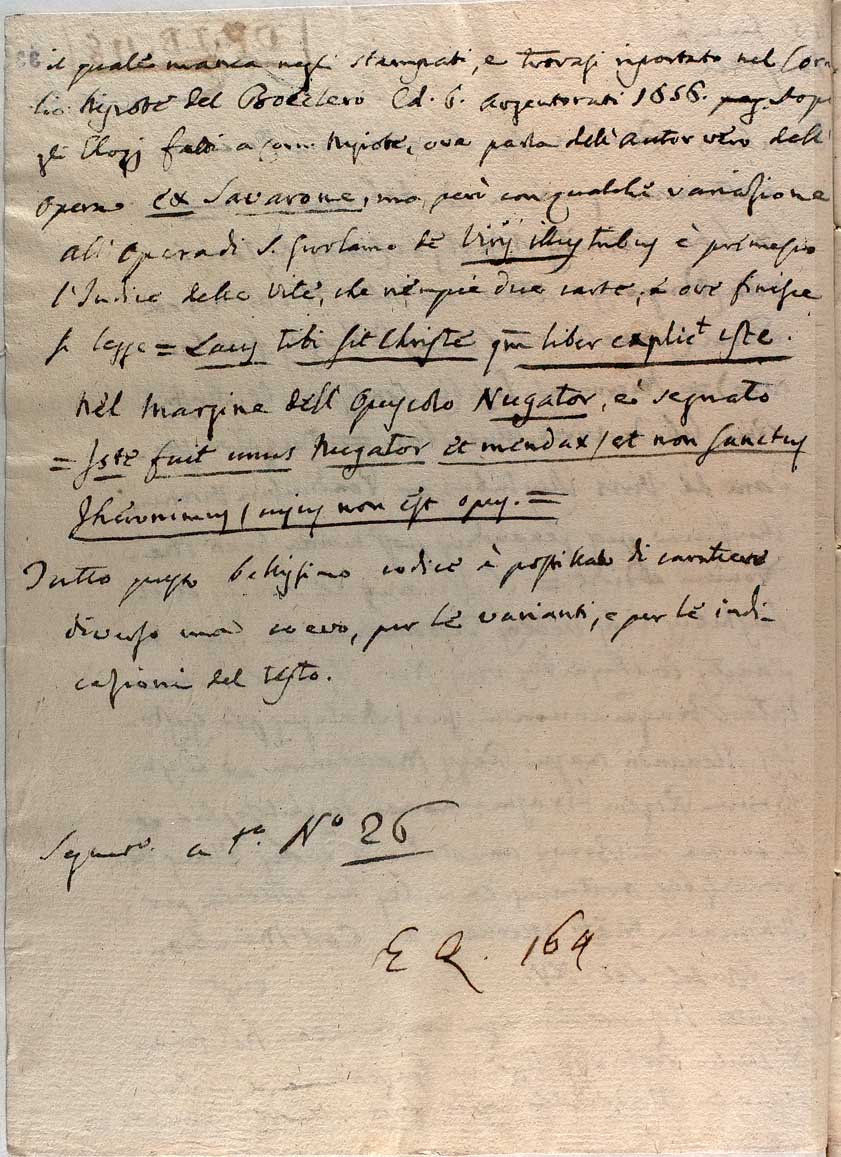 il quale manca negli stampati, e trovasi riportato nel Corne
lio Nipote del Boeclero Ed. 6. Argentorati 1656. dopo
gli Elogj fatti a Corn. Nipote, ove parla dell'Autor vero dell'
Opera ex Savarone, ma però con qualche variazione
All'Opera di S. Girolamo de Viris illustribus è premesso
l'Indice delle Vite, che riempie due carte, e ove finisce
si legge = Laus tibi sit Christe qm liber explict iste.
Nel margine dell'Opuscolo Nugator, è segnato
= Iste fuit unus Nugator et mendax / et non Sanctus
Jheronimus / cujus non est opus. =
Tutto questo bellissimo codice è postillato di carattere
diverso ma coevo, per le varianti, e per le indi-
cazioni del testo.
a tº. Nº 26
E Q. 164